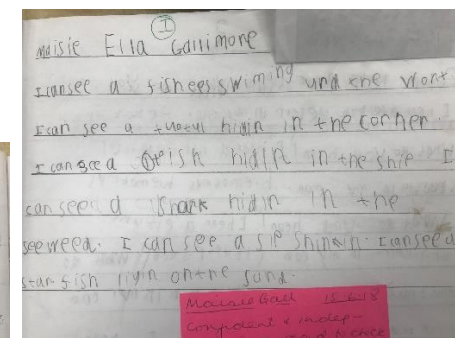 1
Maisie Ella Gallimore
I can see a fishees swiming und the
I can see a hidin in the corner.
I can see a fish hidin in the ship I
can see a shark hidin in the
seeweed. I can see a sip shinin. I can see a
stanfish liyin on the sand.
Maisie 15.6.18
Confident & indep-